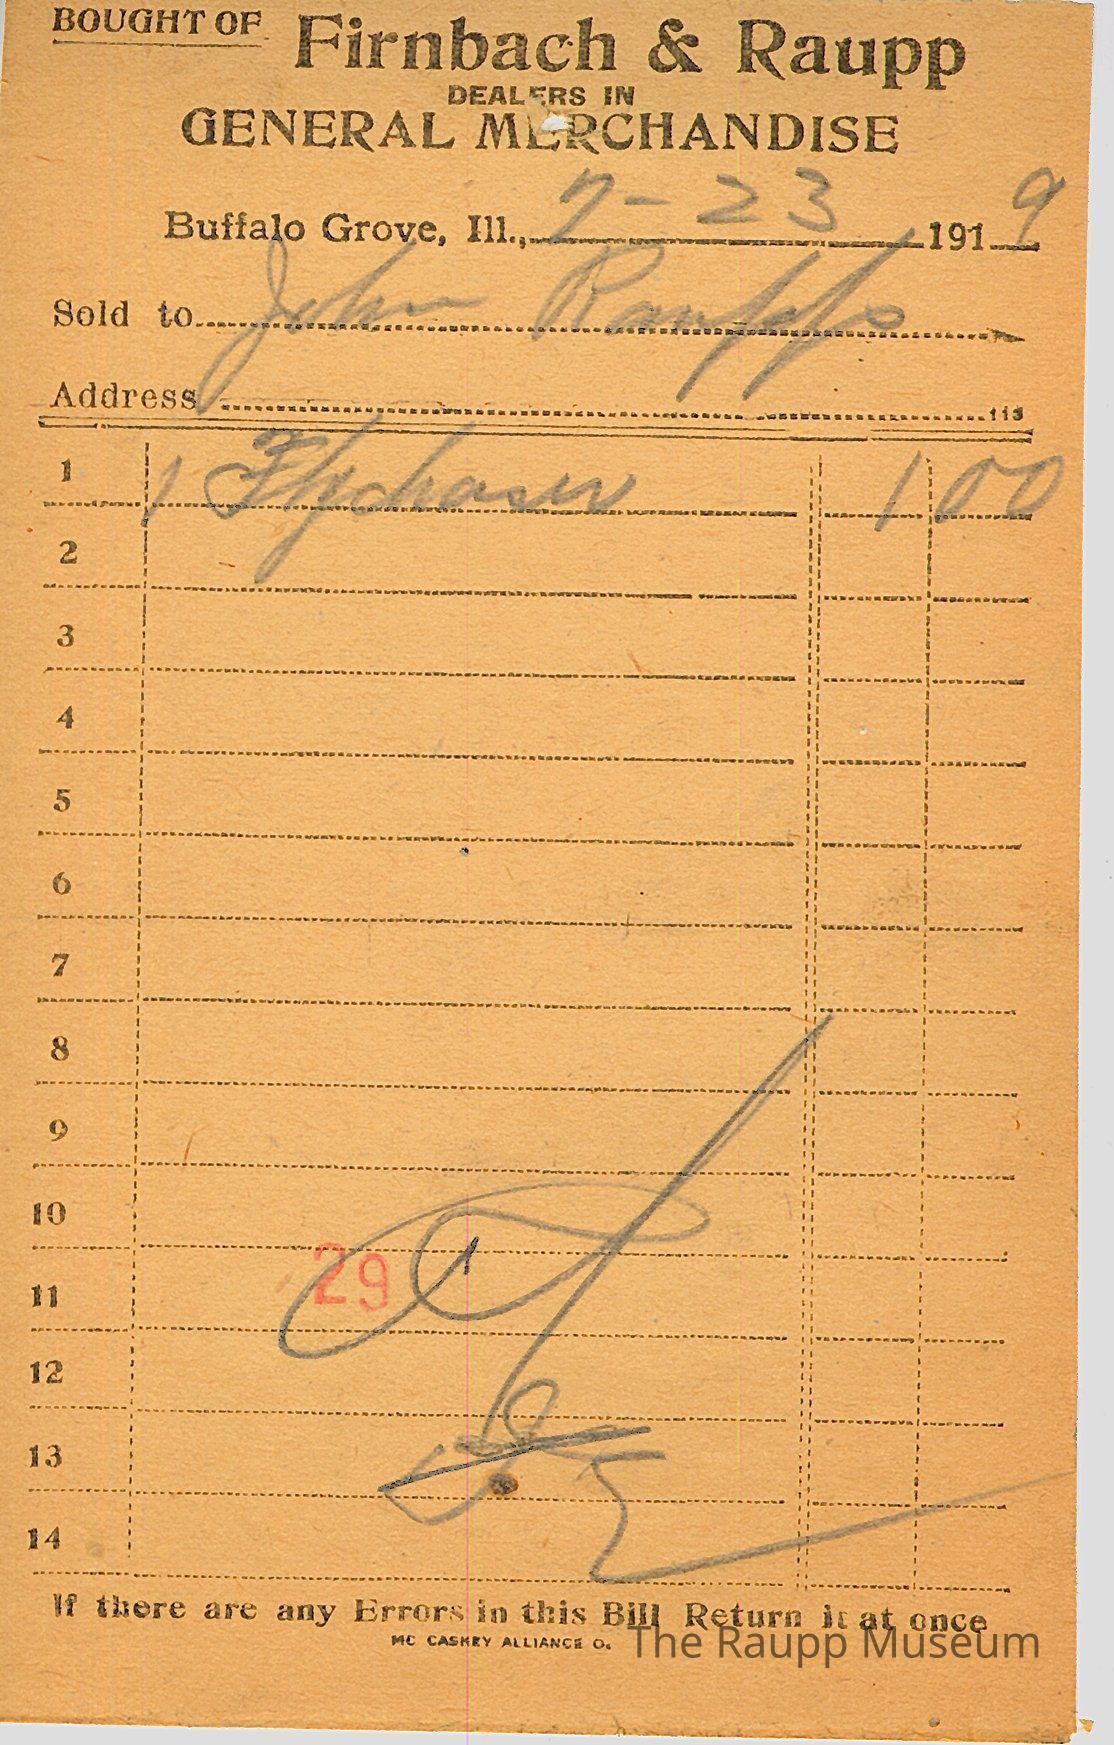 BOUGHT OF Firnbach & Raupp
DEALERS IN
GENERAL MERCHANDISE
Buffalo Grove, Ill., 7-23 1919
Sold to John Raupp
Address 113
1 1 Flychaser 1 00
2
3
4
5
6
7
8
9
10
29
11
12
13
14
If there are any Errors in this Bill Return it at once
MC CASKEY ALLIANCE O.
The Raupp Museum